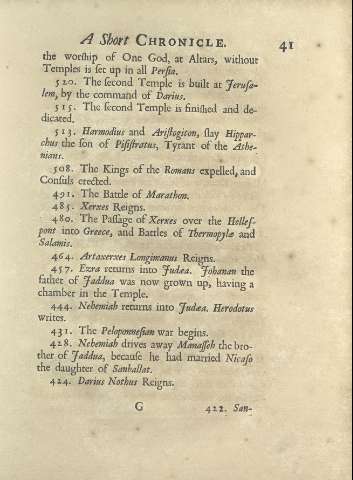 A Short CHRONICLE. 41
the worſhip of One God, at Altars, without
Temples is ſet up in all Perſia.
520. The ſecond Temple is built at Jeruſa-
lem, by the command of Darius.
515. The ſecond Temple is finiſhed and de-
dicated.
513. Harmodius and Ariſtogiton, ſlay Hippar-
chus the ſon of Piſiſtratus, Tyrant of the Athe-
nians.
508. The Kings of the Romans expelled, and
Conſuls erected.
491. The Battle of Marathon.
485. Xerxes Reigns.
480. The Paſſage of Xerxes over the Helleſ-
pont into Greece, and Battles of Thermopylæ and
Salamis.
464. Artaxerxes Longimanus Reigns.
457. Ezra returns into Judæa. Johanan the
father of Jaddua was now grown up, having a
chamber in the Temple.
444. Nehemiah returns into Judæa. Herodotus
writes.
431. The Peloponneſian war begins.
428. Nehemiah drives away Manaſſeh the bro-
ther of Jaddua, becauſe he had married Nicaſo
the daughter of Sanballat.
424. Darius Nothus Reigns.
G 422. San-